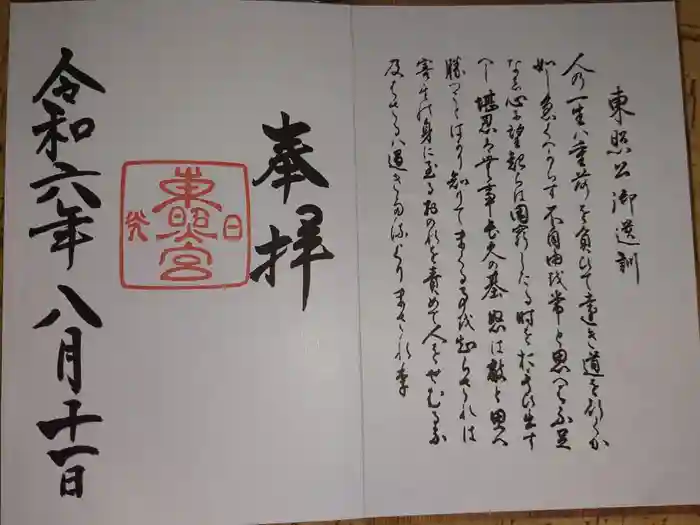 東照公御遺訓
人の一生ハ重荷を負ひて遠き道を行くか
如し急くへからす不自由を常と思へハ不足
なし心に望起らは困窮したる時を思ひ出す
へし堪忍は無事長久の基怒は敵と思へ
勝つことはかり知りてまくる事を知らされは
害其身に至るおのれを責めて人をせむるな
及はさるハ過きたるよりまされり
奉拝
日光
東照宮
令和六年八月十一日